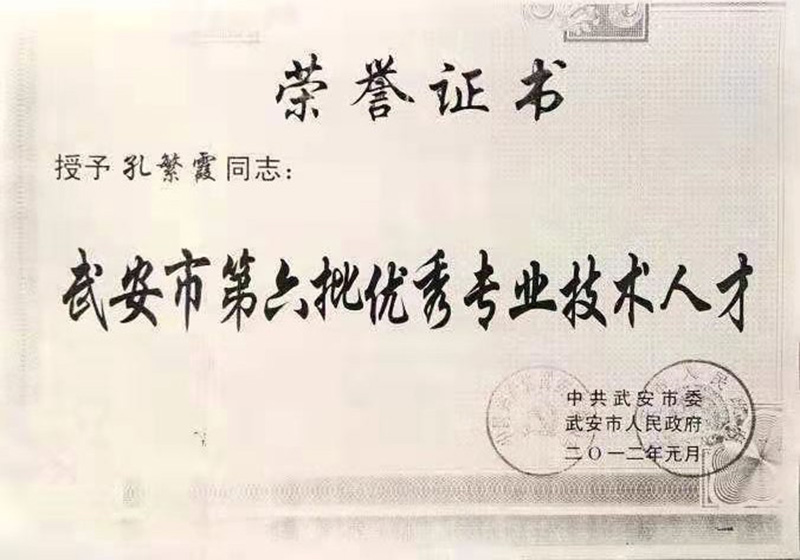 荣誉证书
授予孔繁霞同志：
武安市第六批优秀专业技术人才
中共武安市委
武安市人民政府
二〇一二年元月